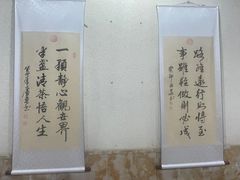 路虽远行则将至
事虽难做则必成
一颗静心观世界
半盏清茶悟人生